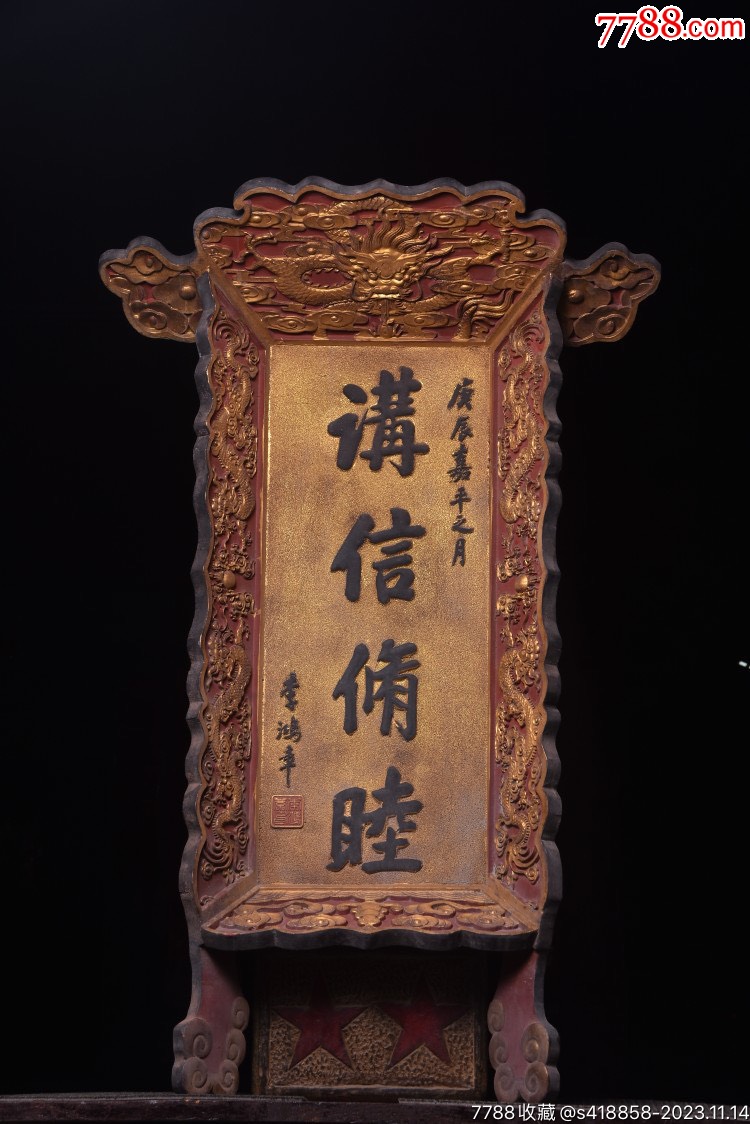 7788.com
庚辰嘉平之月
講信脩睦
李鴻章
7788收藏@s418858-2023.11.14